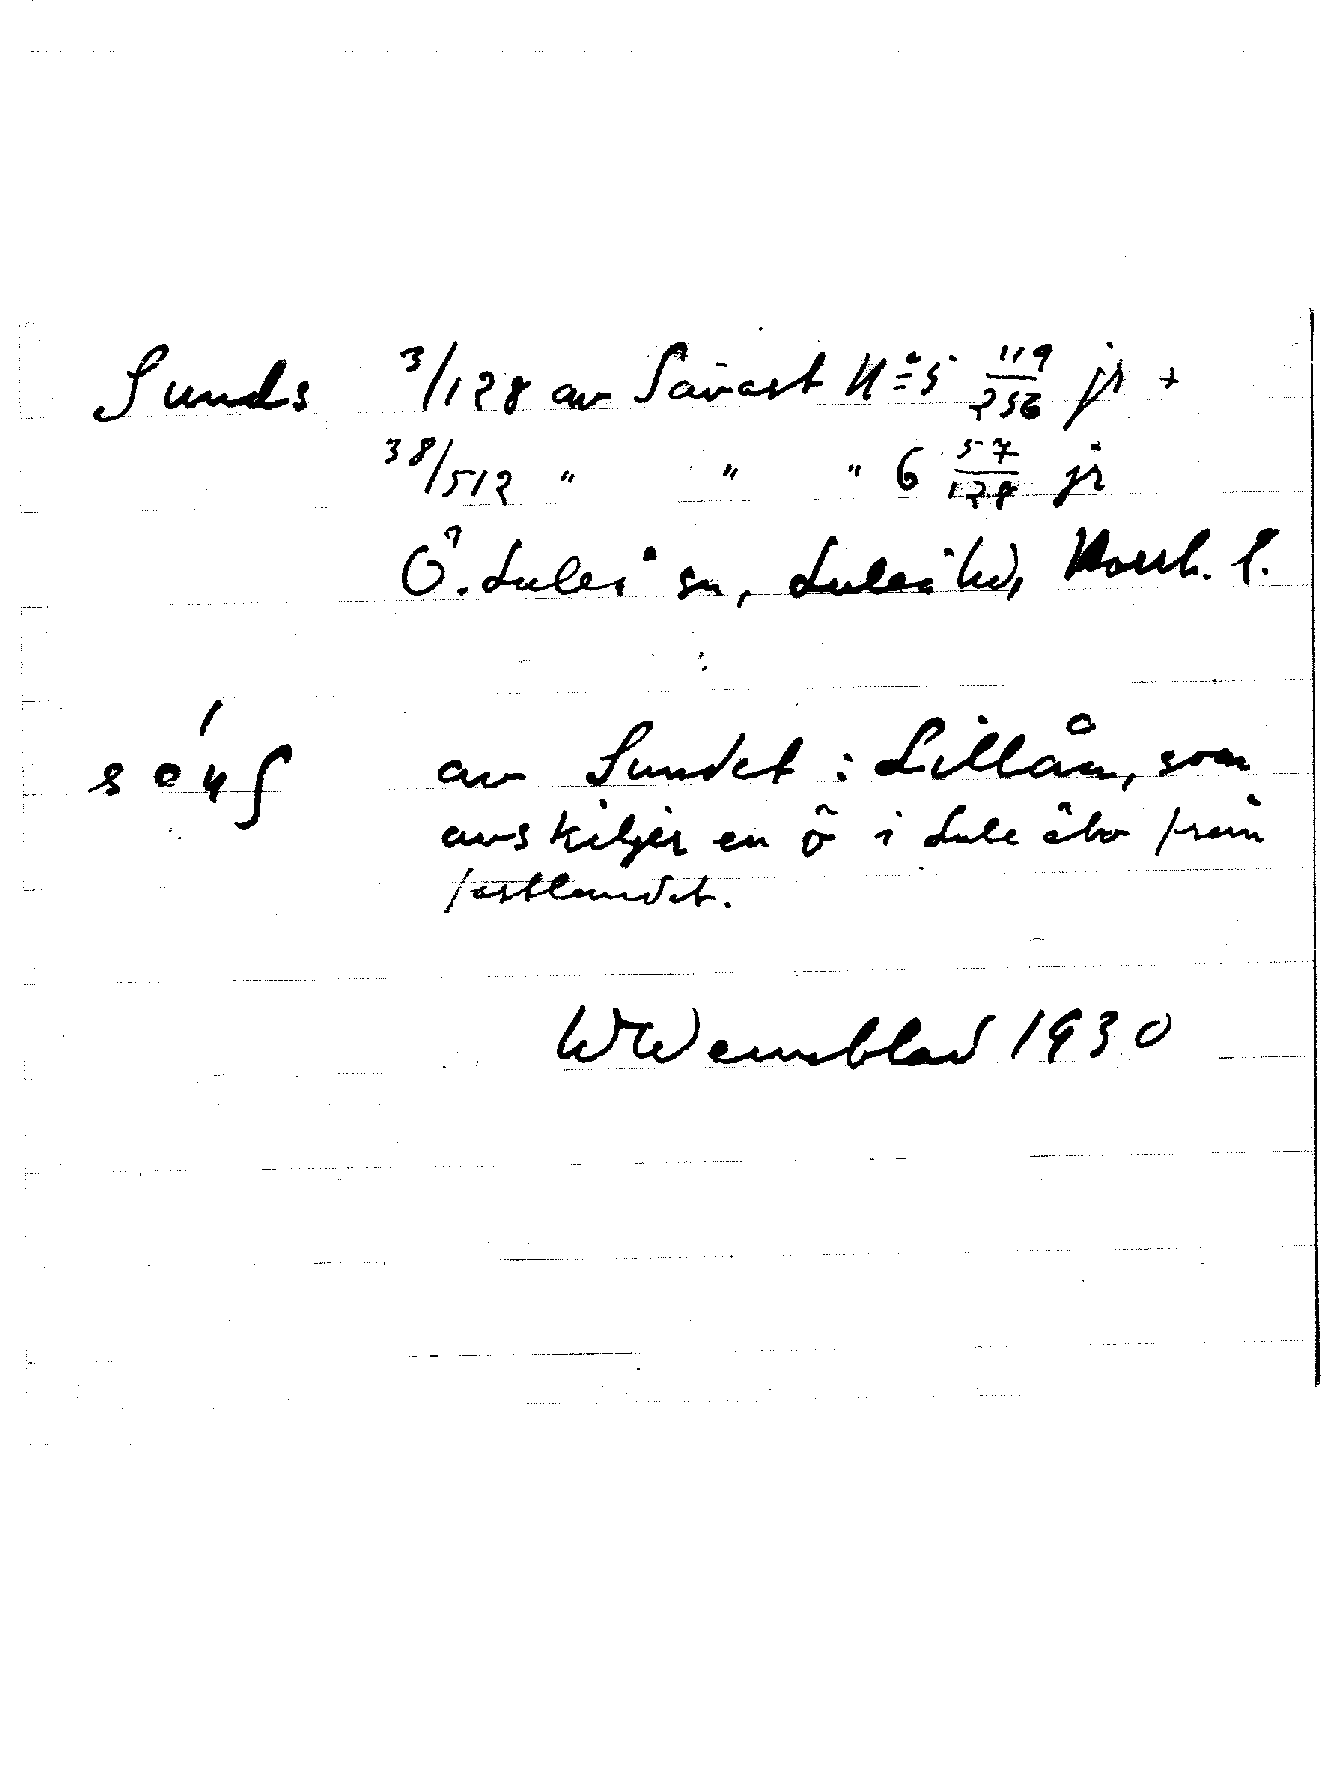 Sunds 3/128 av Sävast No 5 119/256 jr +
38/512 " " " 6 57/128 jr
Ö. Luleå sn, Luleå hd, Norrb. l.
av Sundet: Lillån, som
avskiljer en ö i Lule älv från
fastlandet.
WWennblad 1930